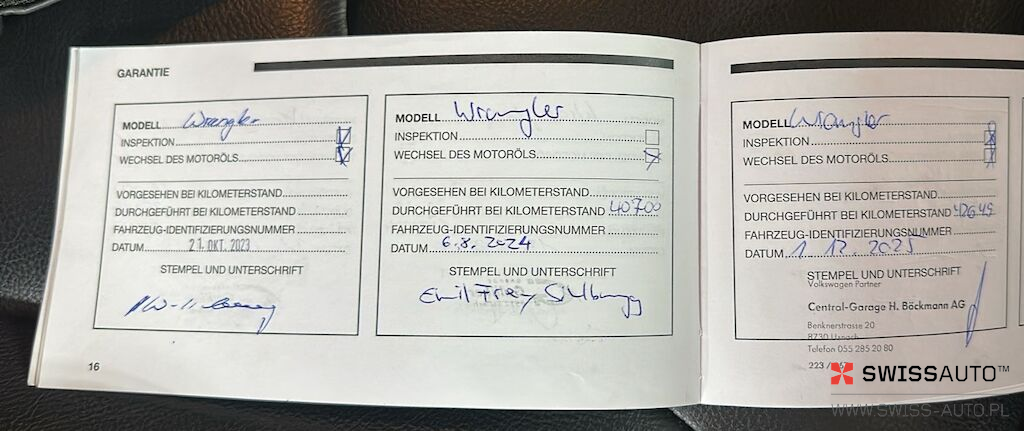 GARANTIE
MODELL Wrangler
INSPEKTION
WECHSEL DES MOTORÖLS
VORGESEHEN BEI KILOMETERSTAND
DURCHGEFÜHRT BEI KILOMETERSTAND
FAHRZEUG-IDENTIFIZIERUNGSNUMMER
DATUM 21. OKT. 2023
STEMPEL UND UNTERSCHRIFT
16
MODELL Wrangler
INSPEKTION
WECHSEL DES MOTORÖLS
VORGESEHEN BEI KILOMETERSTAND
DURCHGEFÜHRT BEI KILOMETERSTAND 40700
FAHRZEUG-IDENTIFIZIERUNGSNUMMER
DATUM 6.8.2024
STEMPEL UND UNTERSCHRIFT
Emil Frey
MODELL Wrangler
INSPEKTION
WECHSEL DES MOTORÖLS
VORGESEHEN BEI KILOMETERSTAND
DURCHGEFÜHRT BEI KILOMETERSTAND 42649
FAHRZEUG-IDENTIFIZIERUNGSNUMMER
DATUM 1.12.2025
STEMPEL UND UNTERSCHRIFT
Volkswagen Partner
Central-Garage H. Böckmann AG
Benknerstrasse 20
8730 Uznach
Telefon 055 285 20 80
223 /
SWISSAUTO™
WWW.SWISS-AUTO.PL